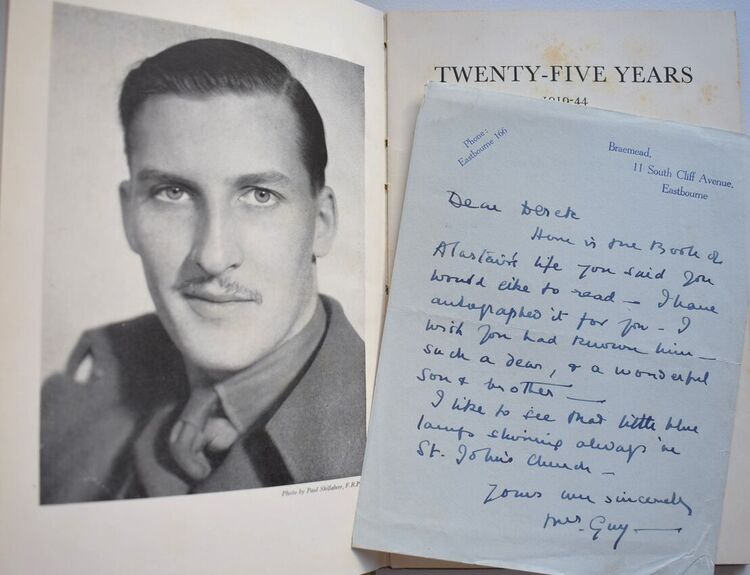 TWENTY-FIVE YEARS
1919-44
Photo by Paul Shillabeer, F.R.P.
Phone:
Eastbourne 166
Braemead,
11 South Cliff Avenue,
Eastbourne
Dear Derek
Here is the Book of
Alastair's life you said you
would like to read — I have
autographed it for you — I
wish you had known him —
such a dear, & a wonderful
son & brother —
I like to see that little blue
lamp shining always in
St. John's Church —
Yours very sincerely
Mrs. Guy —